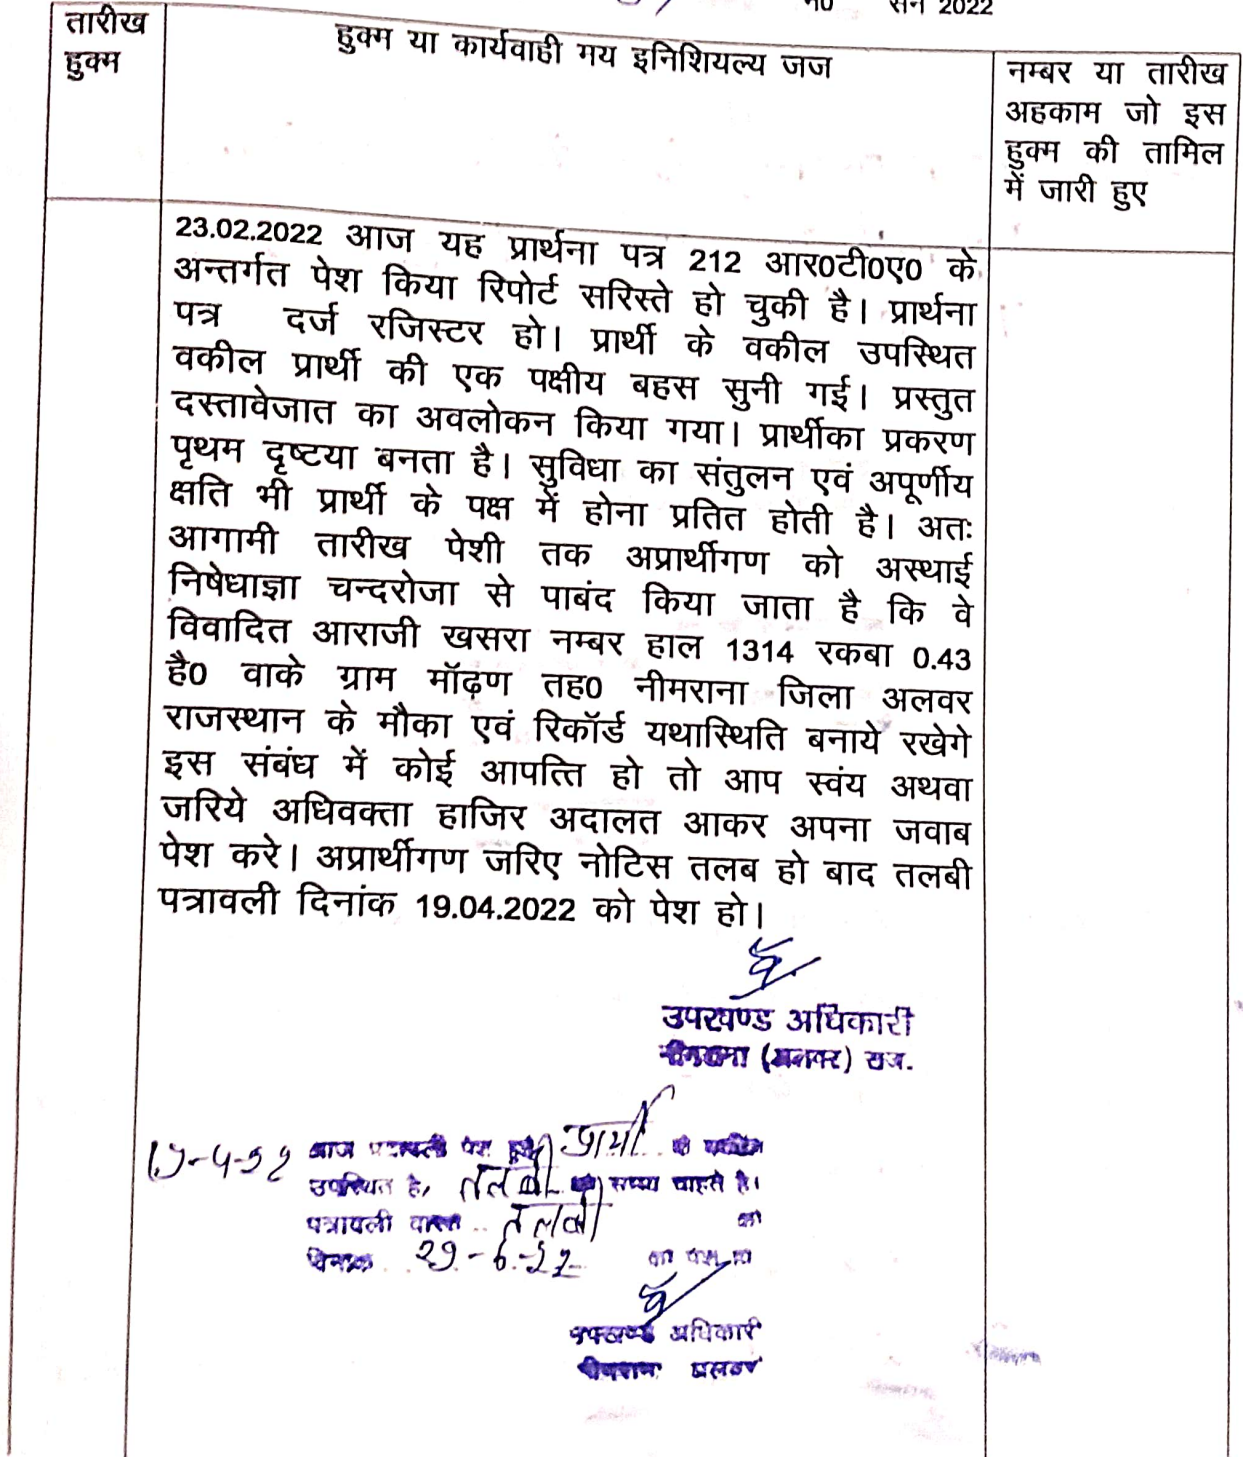 न0 सन 2022
तारीख
हुक्म
हुक्म या कार्यवाही मय इनिशियल्य जज
नम्बर या तारीख
अहकाम जो इस
हुक्म की तामिल
में जारी हुए
23.02.2022 आज यह प्रार्थना पत्र 212 आर0टी0ए0 के
अन्तर्गत पेश किया रिपोर्ट सरिस्ते हो चुकी है। प्रार्थना
पत्र दर्ज रजिस्टर हो। प्रार्थी के वकील उपस्थित
वकील प्रार्थी की एक पक्षीय बहस सुनी गई। प्रस्तुत
दस्तावेजात का अवलोकन किया गया। प्रार्थीका प्रकरण
पृथम दृष्टया बनता है। सुविधा का संतुलन एवं अपूर्णीय
क्षति भी प्रार्थी के पक्ष में होना प्रतित होती है। अतः
आगामी तारीख पेशी तक अप्रार्थीगण को अस्थाई
निषेधाज्ञा चन्दरोजा से पाबंद किया जाता है कि वे
विवादित आराजी खसरा नम्बर हाल 1314 रकबा 0.43
है0 वाके ग्राम मॉढ़ण तह0 नीमराना जिला अलवर
राजस्थान के मौका एवं रिकॉर्ड यथास्थिति बनाये रखेगे
इस संबंध में कोई आपत्ति हो तो आप स्वंय अथवा
जरिये अधिवक्ता हाजिर अदालत आकर अपना जवाब
पेश करे। अप्रार्थीगण जरिए नोटिस तलब हो बाद तलबी
पत्रावली दिनांक 19.04.2022 को पेश हो।
उपखण्ड अधिकारी
नीमराना (अलवर) राज.
आज पत्रावली पेश हुई प्रार्थी के वकील
उपस्थित है, तलबी का समय चाहते है।
पत्रावली वास्ते तलबी का
दिनांक 29-6-22 को पेश हो
उपखण्ड अधिकारी
नीमराना अलवर